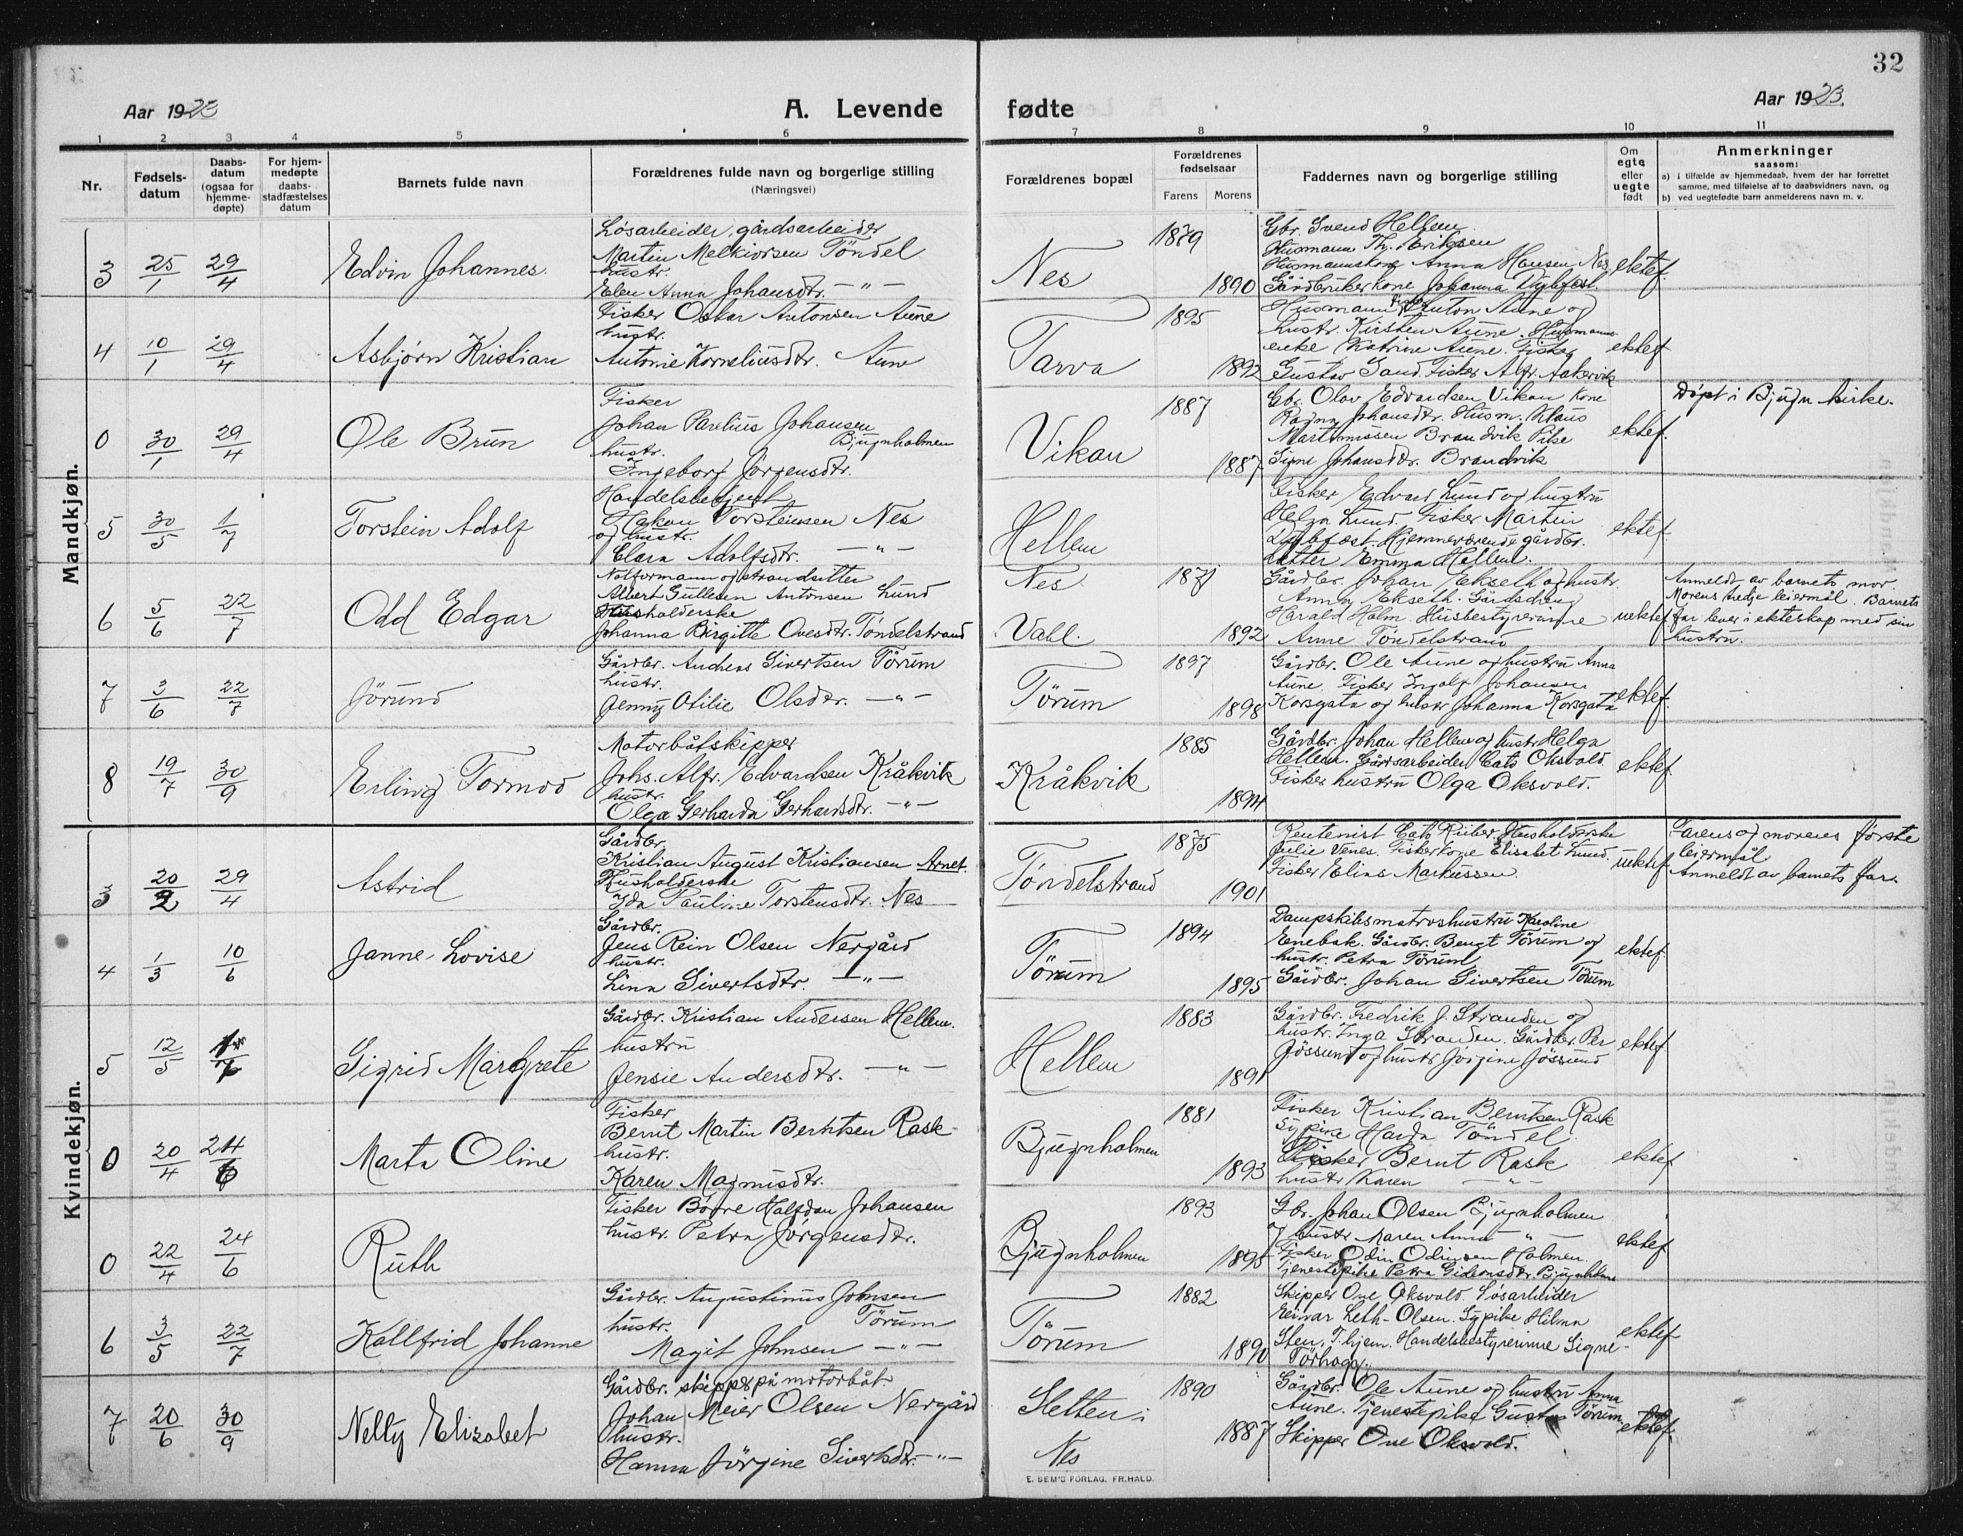 32
Aar 1923
A. Levende fødte
Aar 1923.
1 2 3 4 5 6 7 8 9 10 11
Nr.
Fødsels-
datum
Daabs-
datum
(ogsaa for
hjemme-
døpte)
For hjem-
medøpte
daabs-
stadfæstelses
datum
Barnets fulde navn
Forældrenes fulde navn og borgerlige stilling
(Næringsvei)
Forældrenes bopæl
Forældrenes
fødselsaar
Farens Morens
Faddernes navn og borgerlige stilling
Om
egte
eller
uegte
født
Anmerkninger
saasom:
a) i tilfælde av hjemmedaab, hvem der har forrettet
samme, med tilføielse af to daabsvidners navn, og
b) ved uegtefødte barn anmelderens navn m. v.
Mandkjøn.
3 25/1 29/4 Edvin Johannes
Løsarbeider, gårdsarbeider
Martin Melkiorsen Töndel
hustr.
Elen Anna Johansdtr. —"—
Nes 1879 1890
Gbr. Svend Hellem.
Husmann Th. Eriksen
Husmannskone Anna Hansen Nes
Gårdbrukerkone Johanna Dybfest.
ektef.
4 10/1 29/4 Asbjørn Kristian
Fisker Oskar Antonsen Aune
hustr.
Antonie Korneliusdtr. Aune
Tarva 1895 1892
Husmann Anton Aune og
hustr. Kirsten Aune. Husmanns-
enke Katrine Aune. Fisker
Gustav Sand. Fisker Alfr. Aakervik
ektef.
0 30/1 29/4 Ole Brun
Fisker
Johan Parelius Johansen
Bjugnholmen
hustr.
Ingeborg Jörgensdtr.
Vikan 1887 1887
Gbr. Olov Edvardsen Vikan kone
Ragna Johansdtr. Husm. Klaus
Martinussen Brandvik Pike
Signe Johansdtr. Brandvik
ektef.
Døpt i Bjugn kirke.
5 30/5 1/7 Torstein Adolf
Handelsbetjent
Håkon Torsteinsen Nes
og hustr.
Clara Adolfsdtr. —"—
Hellem
Fisker Edvard Lund og hustru
Helga Lund. Fisker Martin
Dybfest. Hjemmeværende gårdbr.
datter Emma Hellem.
ektef.
6 5/6 22/7 Odd Edgar
Notformann og strandsitter
Albert Gullsen Antonsen Lund
Husholderske
Johanna Birgitte Ovesdtr. Töndelstrand
Nes.
Vall. 1871 1892
Gårdbr. Johan Ekseth og hustr.
Anna Ekseth. Gårdsdreng
Harald Holm. Husbestyrerinne
Anne Töndelstrand
uektef.
Anmeldt av barnets mor.
Morens tredje leiermål. Barnets
far lever i ekteskap med sin
hustru.
7 3/6 22/7 Jörund
Gårdbr. Anders Sivertsen Törum
hustr.
Jenny Otilie Olsdtr. —"—
Törum 1897 1898
Gårdbr. Ole Aune og hustru Anna
Aune. Fisker Ingolf Johansen
Korsgata og hustr. Johanna Korsgata
ektef.
8 19/7 30/9 Erling Tormod
Motorbåtskipper
Johs. Alfr. Edvardsen Kråkvik
hustr.
Olga Gerharda Gerhardsdtr. —"—
Kråkvik 1885 1894
Gårdbr. Johan Hellem og hustr. Helga
Hellem. Gårdsarbeider Cato Oksvold.
Fisker hustru Olga Oksvold.
ektef.
Kvindekjøn.
3 20/2 29/4 Astrid
Gårdbr.
Kristian August Kristiansen Arnet.
Husholderske
Ida Pauline Torstensdtr. Nes
Töndelstrand 1875 1901
Rentenist Cato Riiber. Husholderske
Julie Venes. Fiskerkone Elisabet Lund.
Fisker Elias Markussen.
uektef.
Farens og morens første
leiermål
Anmeldt av barnets far.
4 1/3 10/6 Janne Lovise
Gårdbr.
Jens Rein Olsen Nergård
hustr.
Lina Sivertsdtr. —"—
Törum 1894 1895
Dampskibsmatroshustru Karoline
Enebak. Gårdbr. Bengt Törum og
hustr. Petra Törum
Gårdbr. Johan Sivertsen Törum
ektef.
5 12/5 1/7 Sigrid Margrete
Gårdbr. Kristian Andersen Hellem.
hustru
Jensie Andersdtr. —"—
Hellem 1883 1891
Gårdbr. Fredrik J. Stranden og
hustr. Inga Stranden. Gårdbr. Per
Jössund og hustr. Jörgine Jössund
ektef.
0 20/4 24/6 Marta Oline
Fisker
Bernt Martin Berntsen Rask
hustr.
Karen Magnusdtr.
Bjugnholmen 1881 1893
Fisker Kristian Berntsen Rask
Sypike Harda Töndel
Fisker Bernt Rask
hustr. Karen —"—
ektef
0 22/4 24/6 Ruth
Fisker Börre Halfdan Johansen
hustr. Petra Jörgensdtr.
Bjugnholmen 1893 1895
Gbr. Johan Olsen Bjugnholmen
hustr. Maren Anna —"—
Fisker Odin Odinsen Holmen
Tjenestepike Petra Gideonsdtr. Bjugnholmen
ektef
6 3/5 22/7 Kallfrid Johanne
Gårdbr. Augustinus Johnsen
Törum
hustr.
Magit Johnsen —"—
Törum 1882 1890
Skipper Ove Oksvold Løsarbeider
Einar Leth-Olsen. Sypike Hilma
Sten, T.hjem. Handelsbestyrerinne Signe
Törhogg.
ektef
7 20/6 30/9 Nelly Elisabet
Gårdbr. skipper på motorbåt.
Johan Meier Olsen Nergård
hustr.
Hanna Jörgine Sivertsdtr. —"—
Sletten i
Nes 1890 1887
Gårdbr. Ole Aune og hustru Anna
Aune. Tjenestepike Gusta Törum
Skipper Ove Oksvold.
ektef.
E. SEM'S FORLAG, FR.HALD.